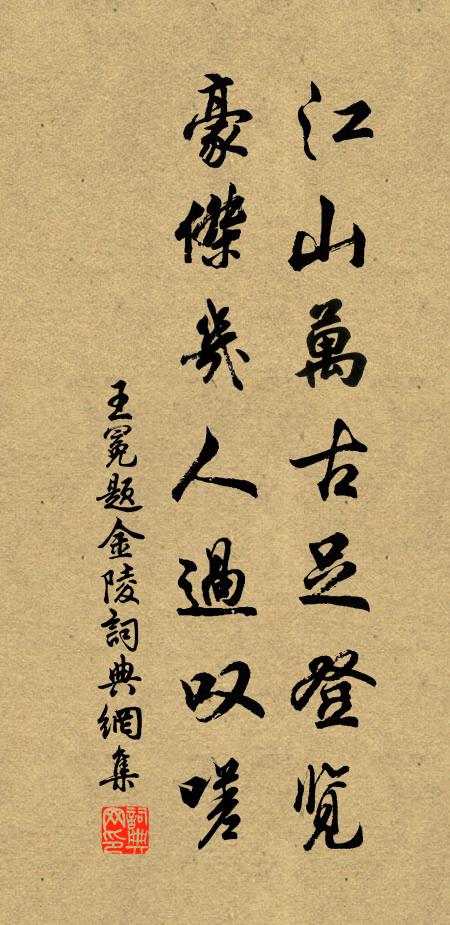 江山萬古足登览
豪傑幾人過叹嗟
王冕题金陵詞典網集
詞典网印